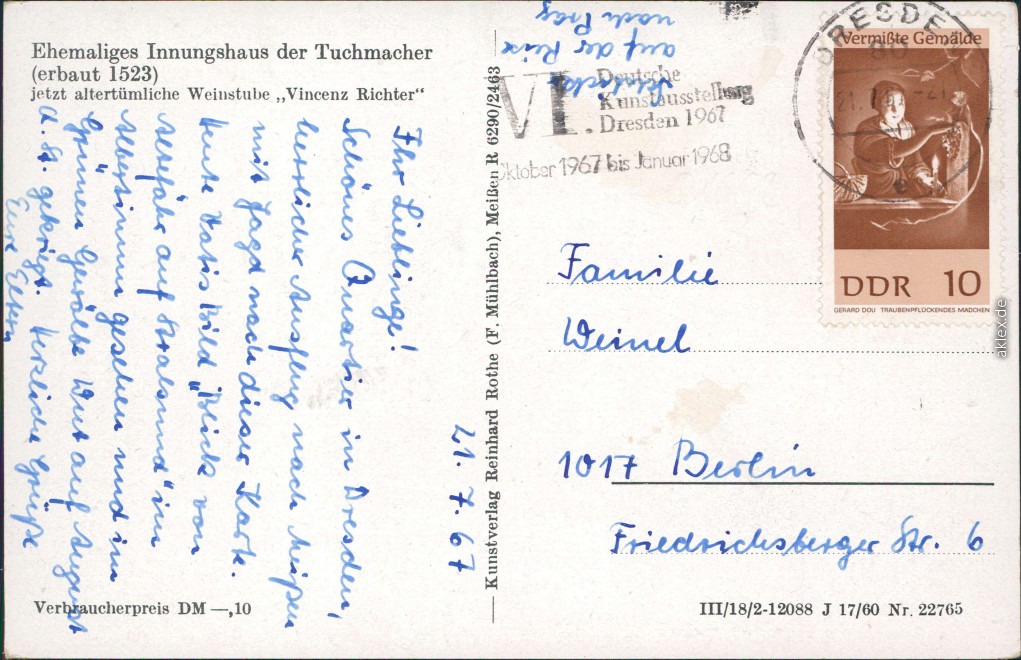 Ehemaliges Innungshaus der Tuchmacher
(erbaut 1523)
jetzt altertümliche Weinstube „Vincenz Richter“
21. 7. 67
Ihr Lieblinge!
Schönes Quartier in Dresden,
herrlicher Ausflug nach Meißen
mit Jagd nach dieser Karte.
Heute Vatis Bild „Blick von
Altefähr auf Stralsund“ im
Albertinum gesehen und im
Grünen Gewölbe Wut auf August
d. St. gekriegt. Herzliche Grüße
Eure Eltern
auf der Reise
nach Prag
Verbraucherpreis DM —,10
Kunstverlag Reinhard Rothe (F. Mühlbach), Meißen R 6290/2463
VI. Deutsche
Kunstausstellung
Dresden 1967
Oktober 1967 bis Januar 1968
DRESDEN
80
21.7.67-21
e
Vermißte Gemälde
DDR 10
GERARD DOU TRAUBENPFLÜCKENDES MÄDCHEN
Familie
Weinel
1017 Berlin
Friedrichsberger Str. 6
III/18/2-12088 J 17/60 Nr. 22765
aklex.de